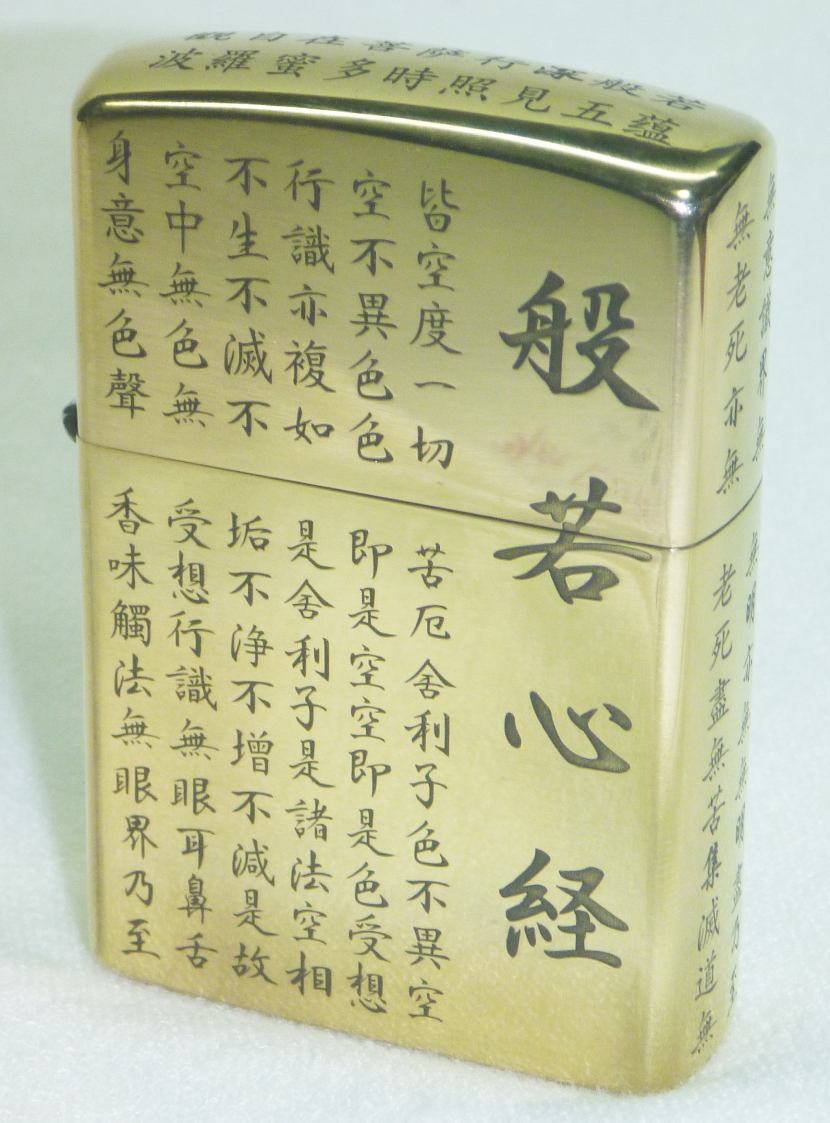 觀自在菩薩行深般若
波羅蜜多時照見五蘊
般若心経
皆空度一切苦厄舍利子色不異空
空不異色色即是空空即是色受想
行識亦複如是舍利子是諸法空相
不生不滅不垢不浄不增不減是故
空中無色無受想行識無眼耳鼻舌
身意無色聲香味觸法無眼界乃至
無意識界無無明亦無無明盡乃至
無老死亦無老死盡無苦集滅道無